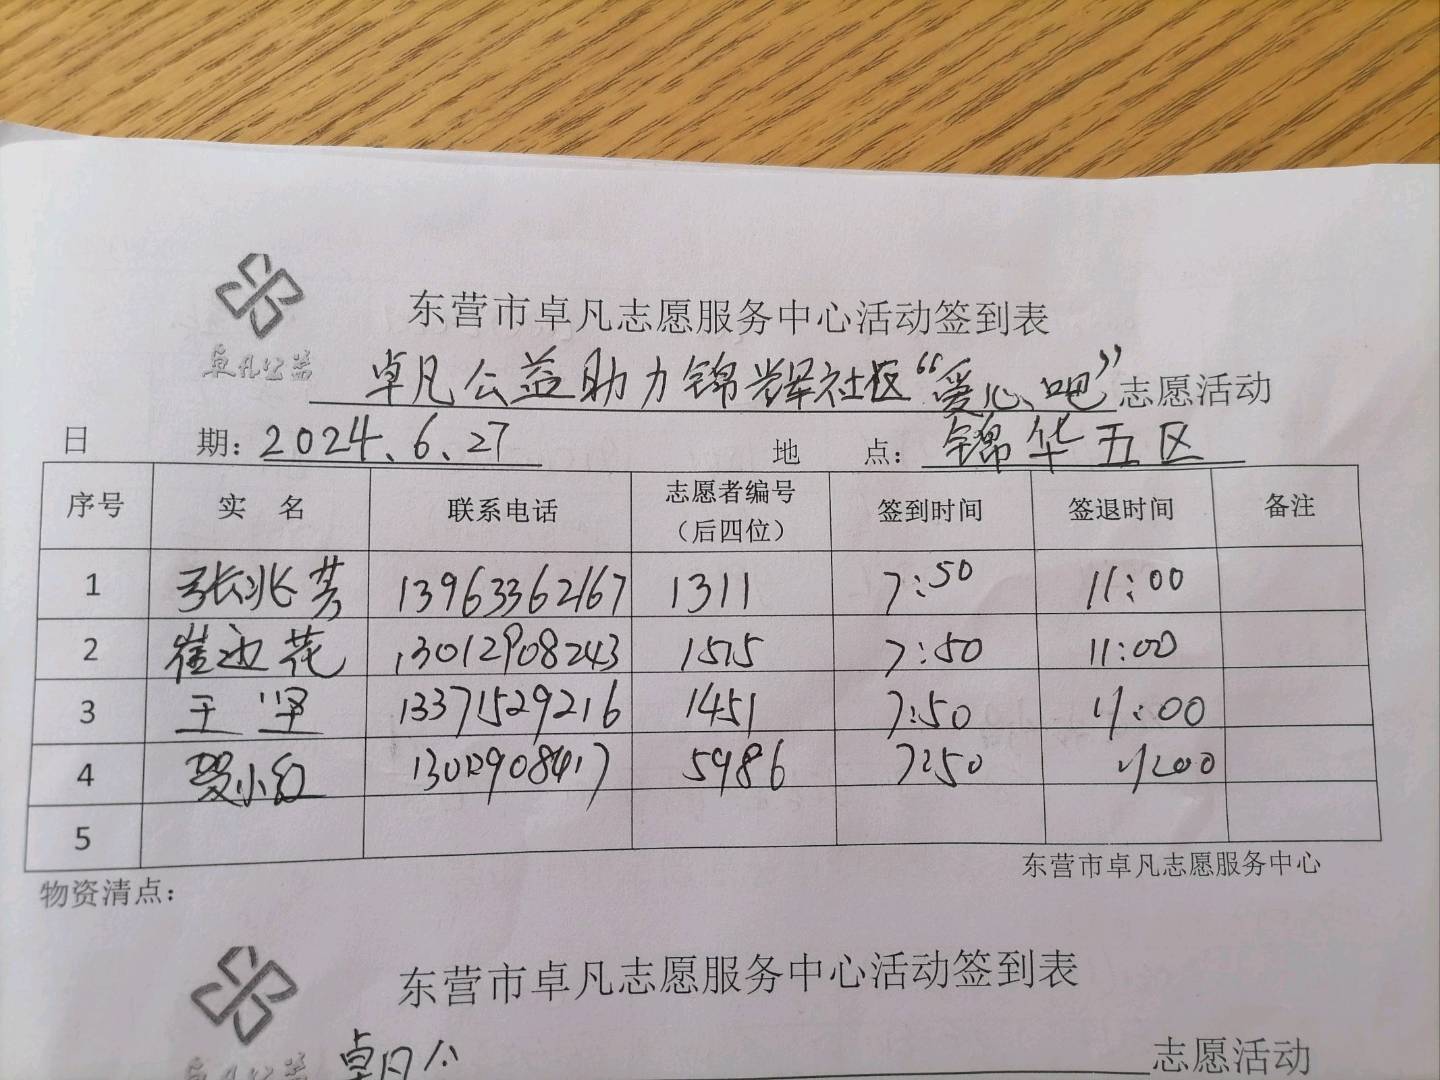 东营市卓凡志愿服务中心活动签到表
卓凡公益
卓凡公益助力锦辉社区“爱心吧”志愿活动
日 期：2024.6.27 地 点：锦华五区
序号 实 名 联系电话 志愿者编号（后四位） 签到时间 签退时间 备注
1 张兆芳 13963362167 1311 7:50 11:00
2 崔迎花 13012908243 1515 7:50 11:00
3 王坚 13371529216 1451 7:50 11:00
4 贺小红 13012908417 5986 7:50 11:00
5
东营市卓凡志愿服务中心
物资清点：
东营市卓凡志愿服务中心活动签到表
卓凡公益
卓凡公 志愿活动